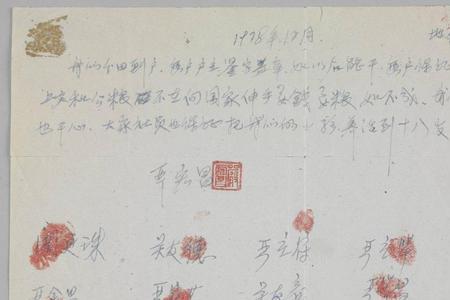 1978年12月. 地
我们分田到户，每户户主签字盖章，如以后能干，每户保证
上交和公粮不在向国家伸手要钱要粮，如不成，我
也干心，大家社员也保证把我们的小孩养活到十八岁
严宏昌
关廷珠 关友德 严立符 严立华
严金昌 关友章